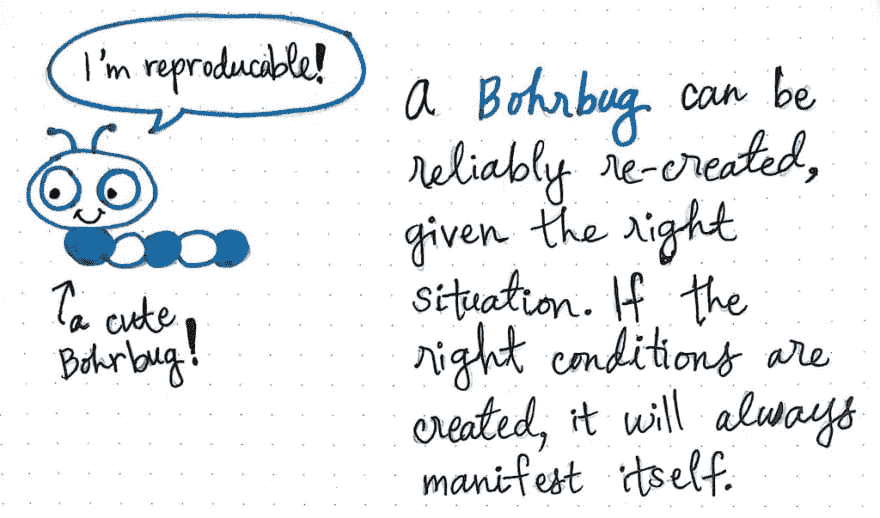 I'm reproducable!
a cute
Bohrbug!
A Bohrbug can be
reliably re-created,
given the right
situation. If the
right conditions are
created, it will always
manifest itself.